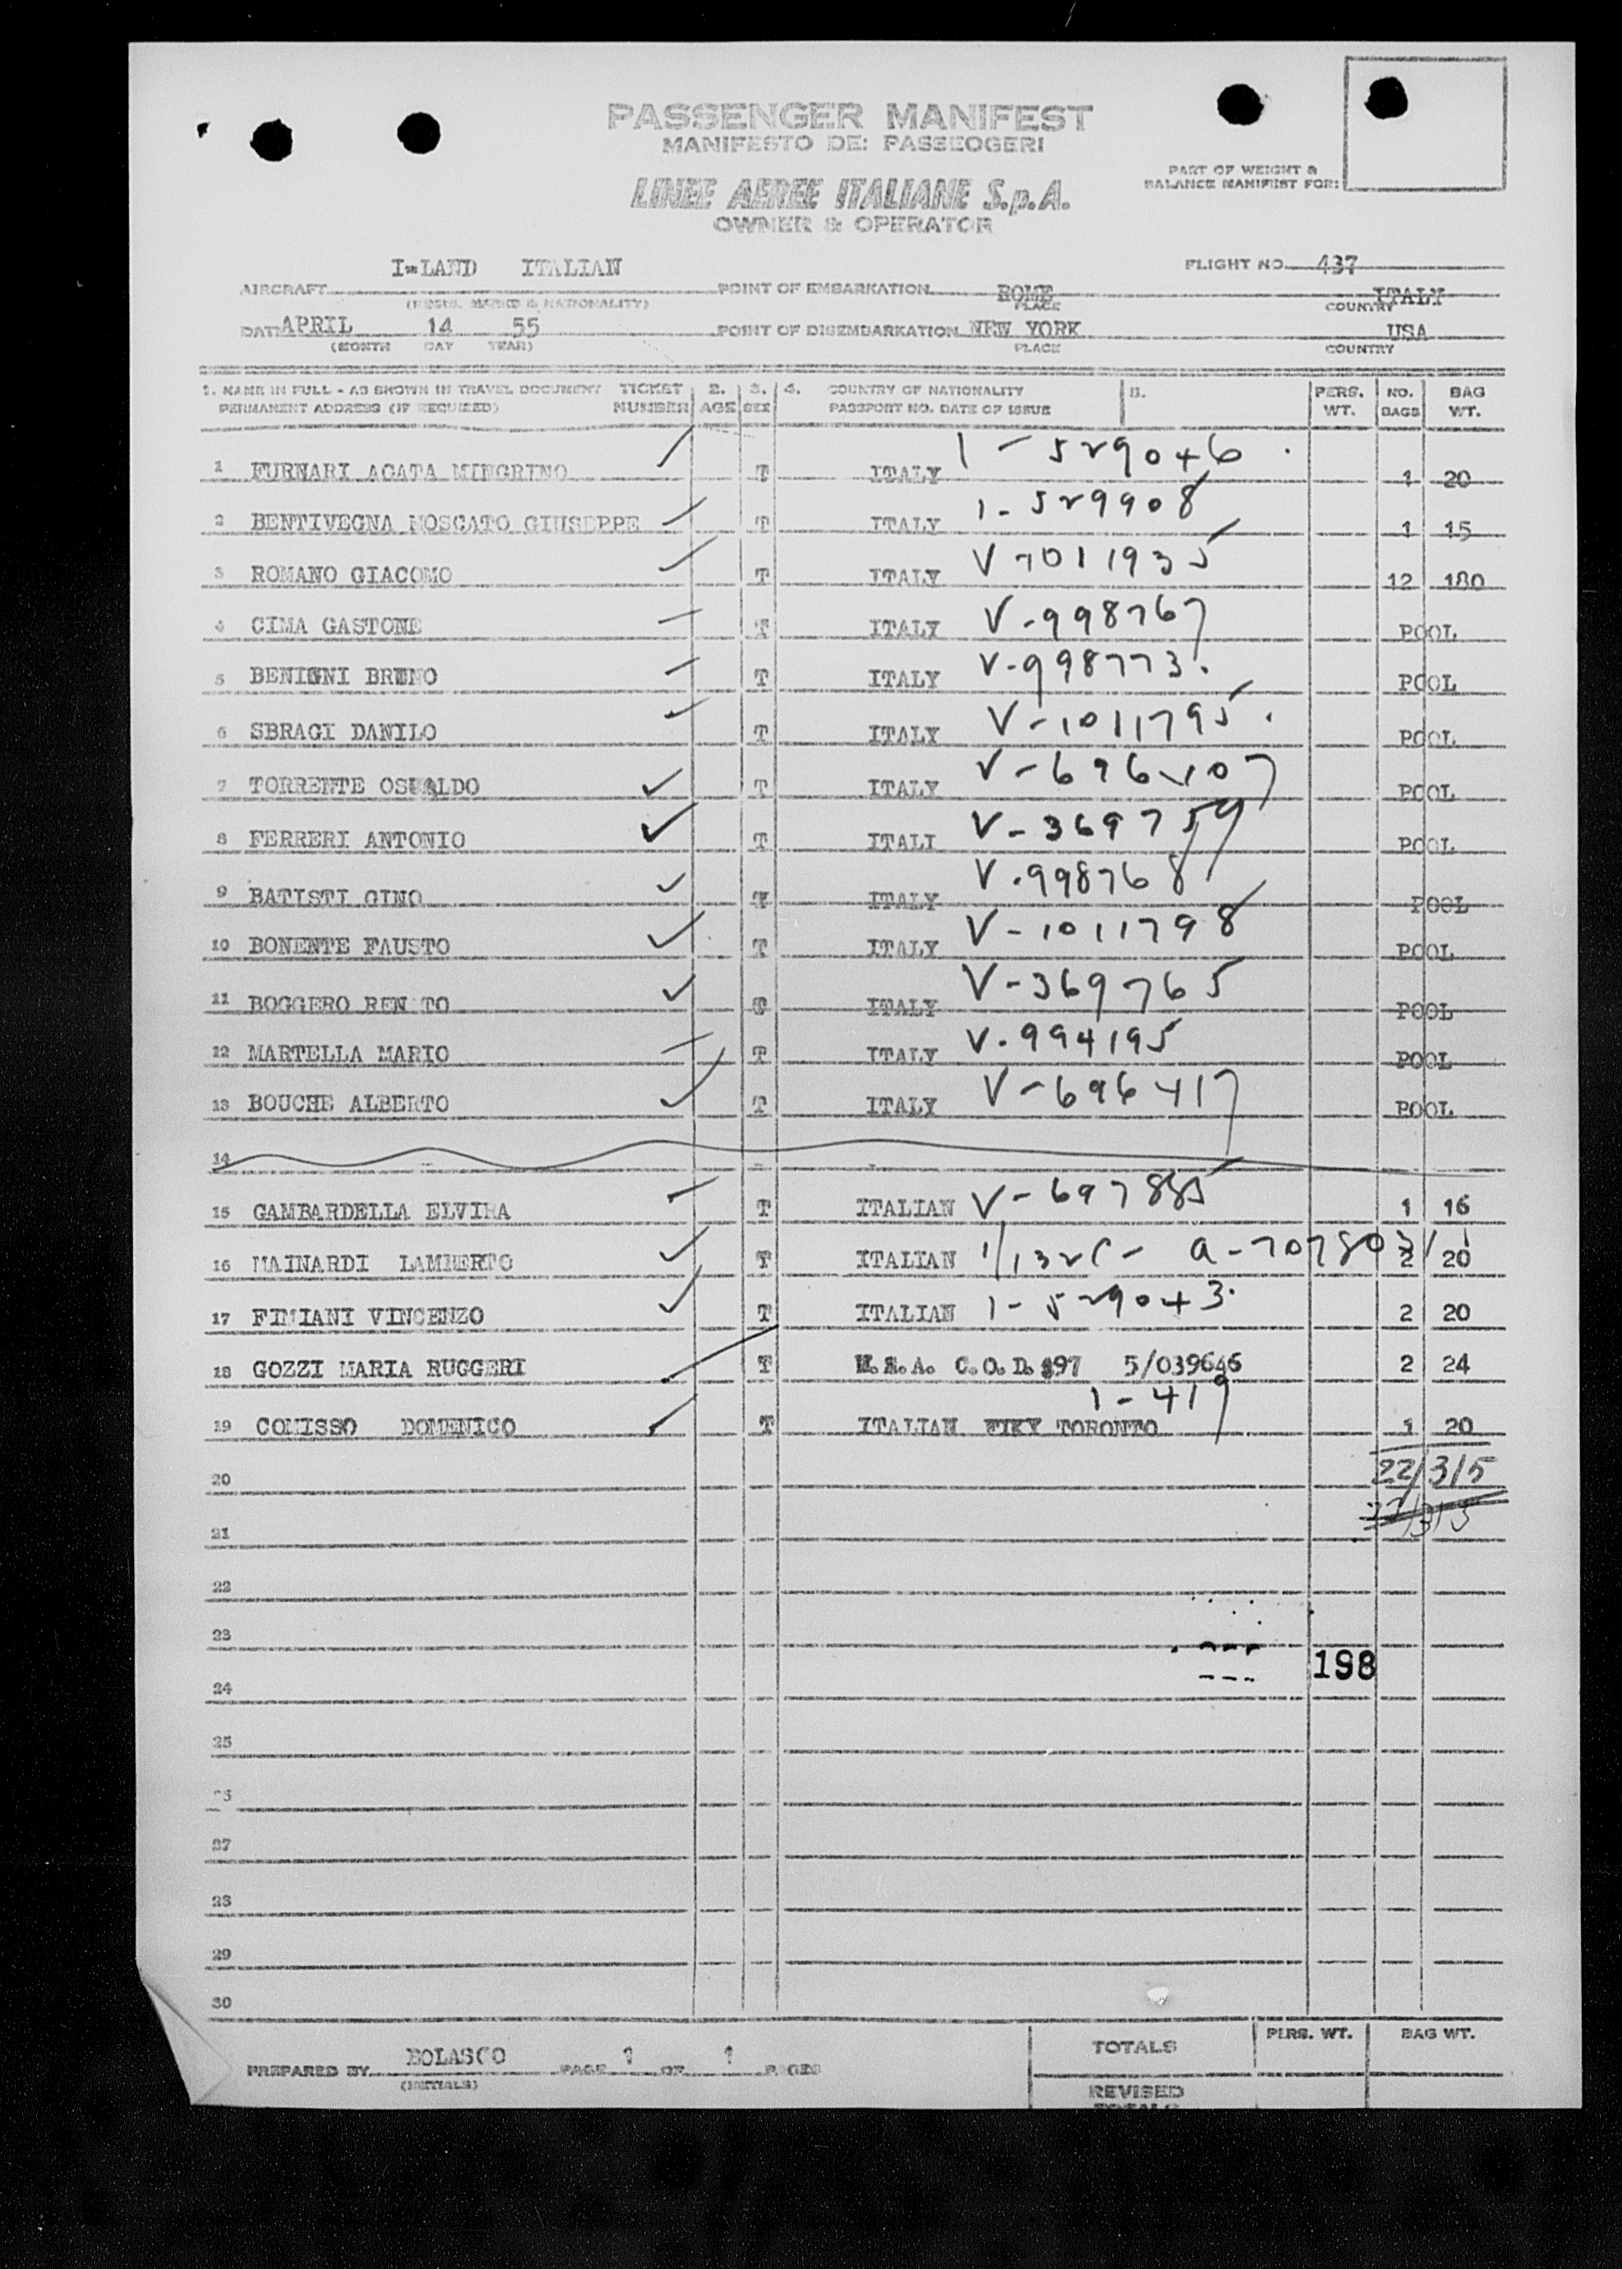 PASSENGER MANIFEST
MANIFESTO DEI PASSEOGERI
LINEE AEREE ITALIANE S.p.A.
OWNER & OPERATOR
PART OF WEIGHT &
BALANCE MANIFEST FOR:
I-LAND ITALIAN FLIGHT NO. 437
AIRCRAFT POINT OF EMBARKATION ROME ITALY
(REGIS. MARKS & NATIONALITY) PLACE COUNTRY
DATE APRIL 14 55 POINT OF DISEMBARKATION NEW YORK USA
(MONTH DAY YEAR) PLACE COUNTRY
1. NAME IN FULL - AS SHOWN IN TRAVEL DOCUMENT TICKET 2. 3. 4. COUNTRY OF NATIONALITY 5. PERS. NO. BAG
PERMANENT ADDRESS (IF REQUIRED) NUMBER AGE SEX PASSPORT NO. DATE OF ISSUE WT. BAGS WT.
1 FURNARI AGATA MINGRINO T ITALY 1-529046 1 20
2 BENTIVEGNA MOSCATO GIUSEPPE T ITALY 1-529908 1 15
3 ROMANO GIACOMO T ITALY V-1011935 12 180
4 CIMA GASTONE T ITALY V-998767 POOL
5 BENIGNI BRUNO T ITALY V-998773 POOL
6 SBRAGI DANILO T ITALY V-1011795 POOL
7 TORRENTE OSVALDO T ITALY V-696407 POOL
8 FERRERI ANTONIO T ITALI V-369759 POOL
9 BATISTI GINO T ITALY V-998768 POOL
10 BONENTE FAUSTO T ITALY V-1011798 POOL
11 BOGGERO RENATO T ITALY V-369765 POOL
12 MARTELLA MARIO T ITALY V-994195 POOL
13 BOUCHE ALBERTO T ITALY V-696417 POOL
14
15 GAMBARDELLA ELVIRA T ITALIAN V-697885 1 16
16 MAINARDI LAMBERTO T ITALIAN 2 20
17 FIMIANI VINCENZO T ITALIAN 1-529043 2 20
18 GOZZI MARIA RUGGERI T U.S.A. C.O.D. 897 5/039646 2 24
1-419
19 COMISSO DOMENICO T ITALIAN TORONTO 1 20
20 22/315
21 22/315
22
23
198
24
25
26
27
28
29
30
TOTALS PERS. WT. BAG WT.
PREPARED BY BOLASCO PAGE 1 OF 1 PAGES
(INITIALS)
REVISED
TOTALS